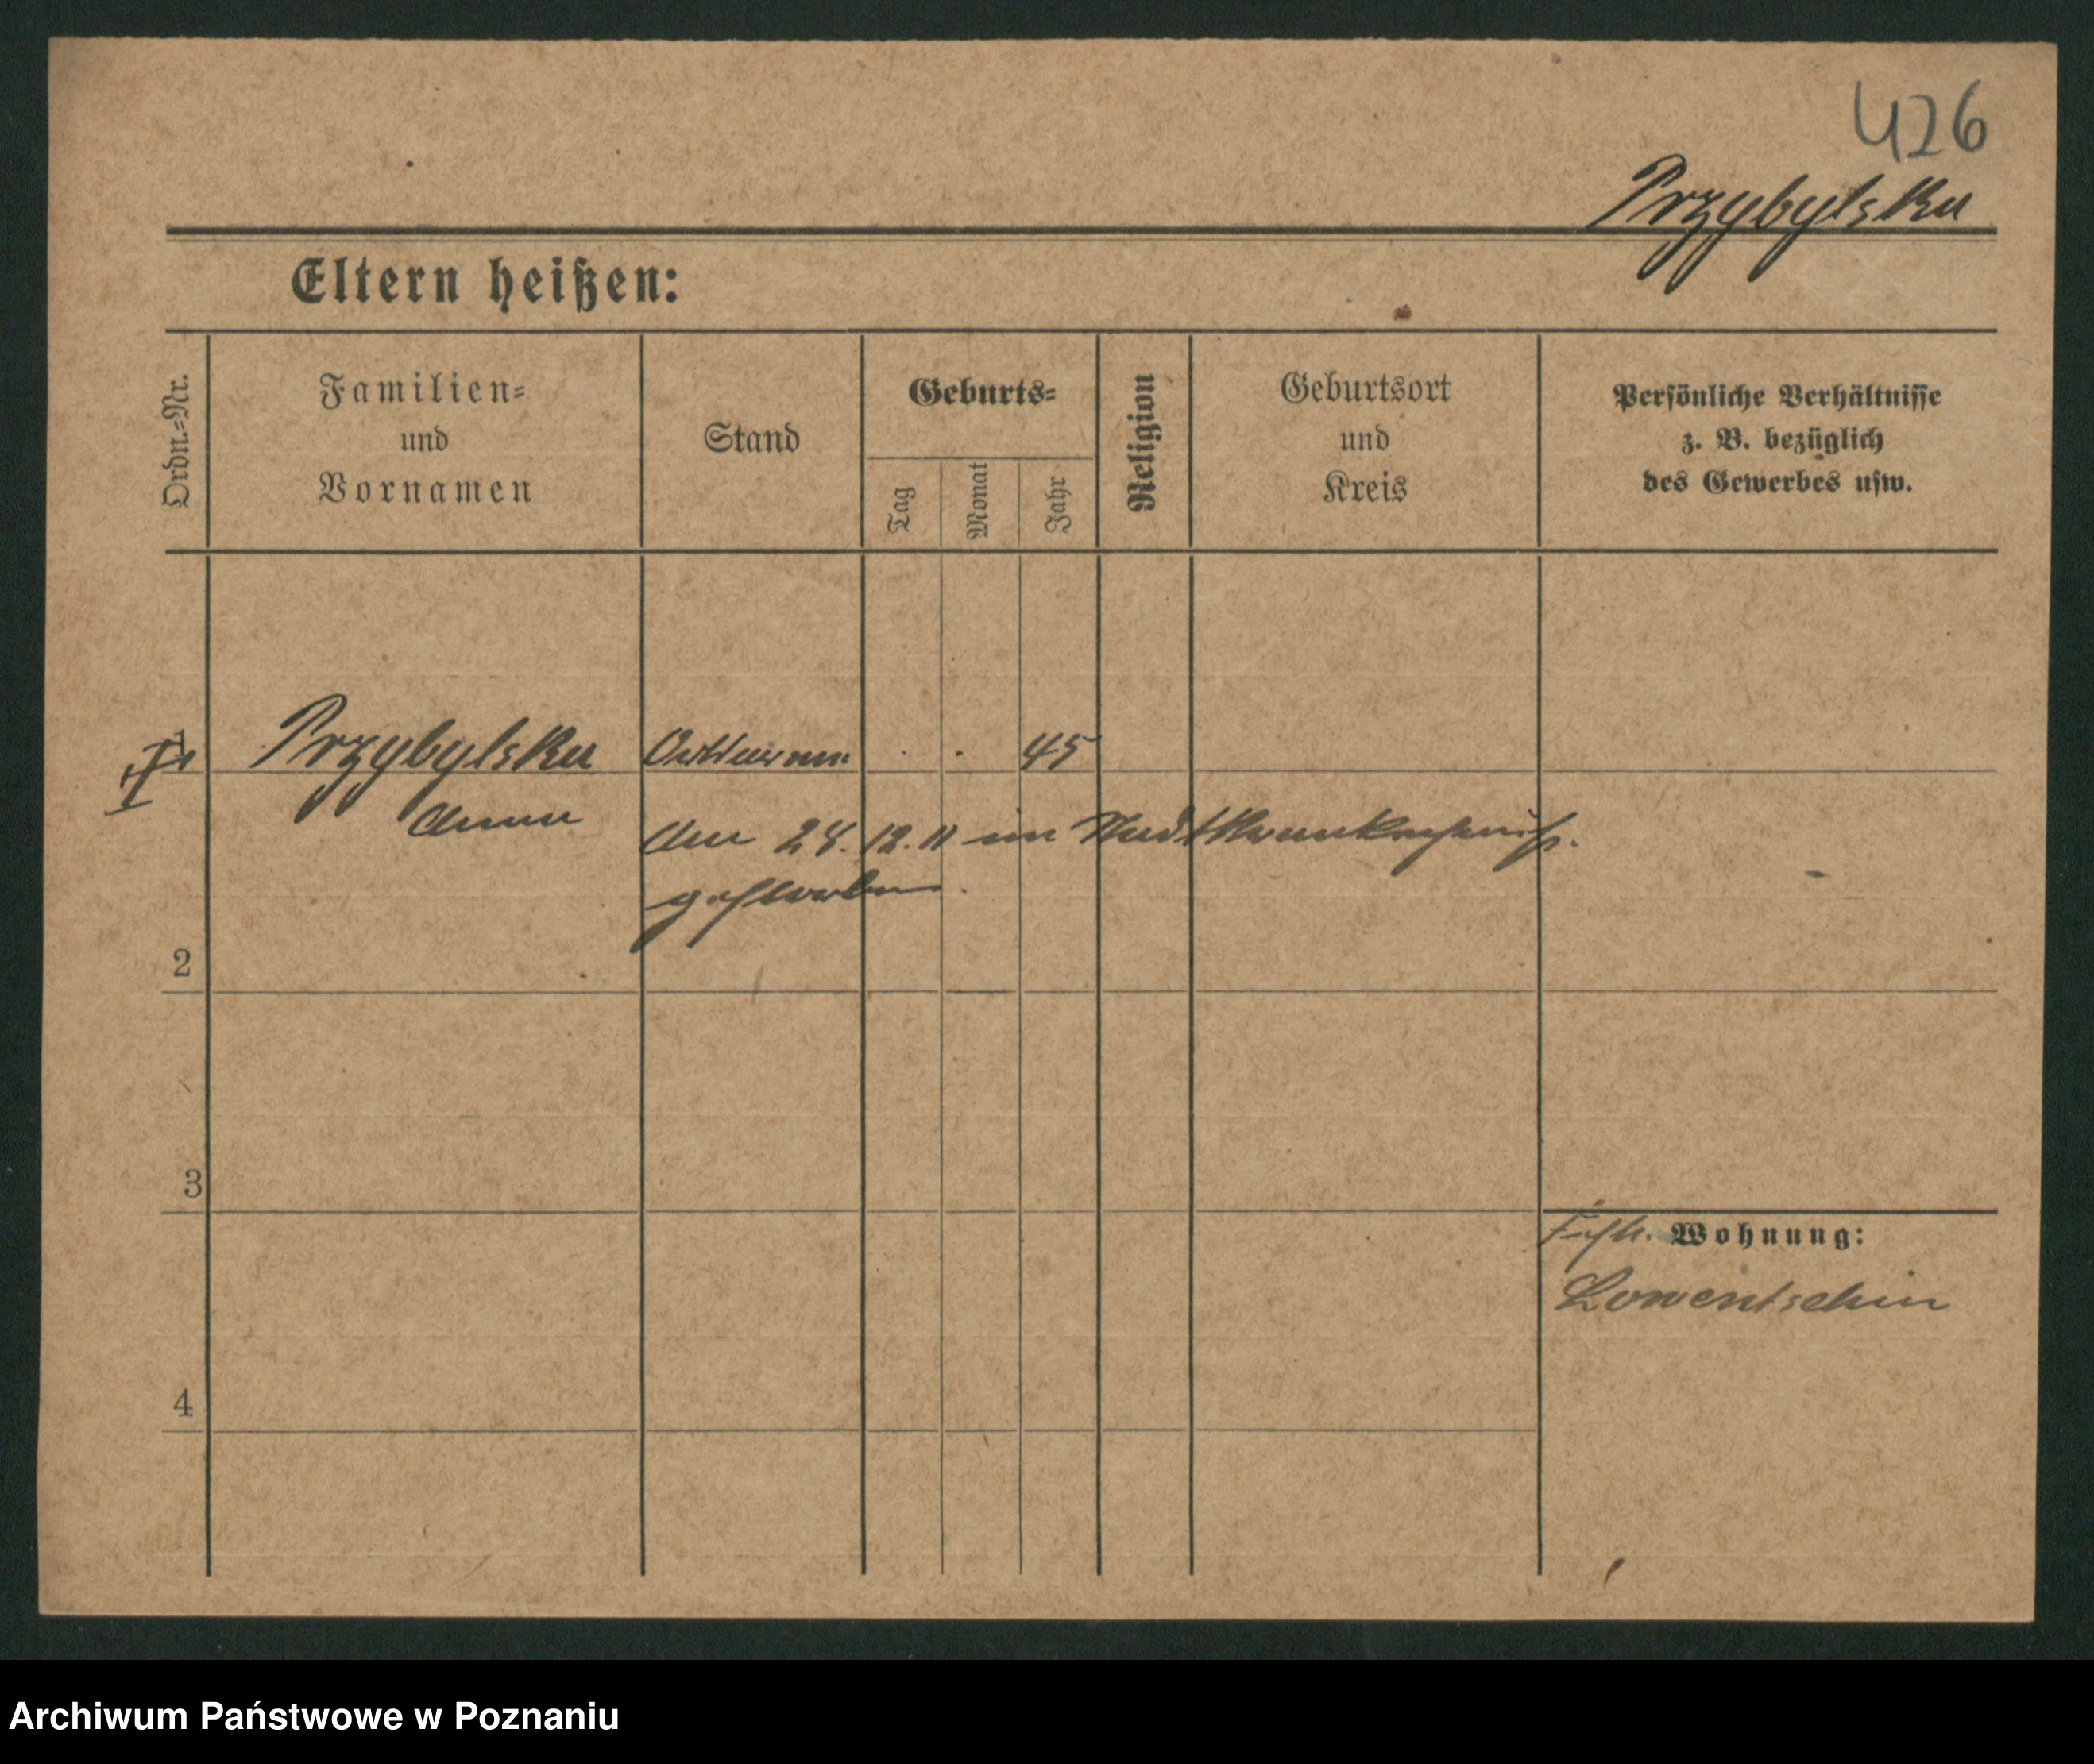 426
Przybylska
Eltern heißen:
Ordn.-Nr.
Familien-
und
Vornamen
Stand
Geburts-
Tag
Monat
Jahr
Religion
Geburtsort
und
Kreis
Persönliche Verhältnisse
z. B. bezüglich
des Gewerbes usw.
1
Przybylska
45
Anna
am 28. 12. 11 im Stadtkrankenhause
gestorben.
2
3
Wohnung:
Lowentschin
4
Archiwum Państwowe w Poznaniu